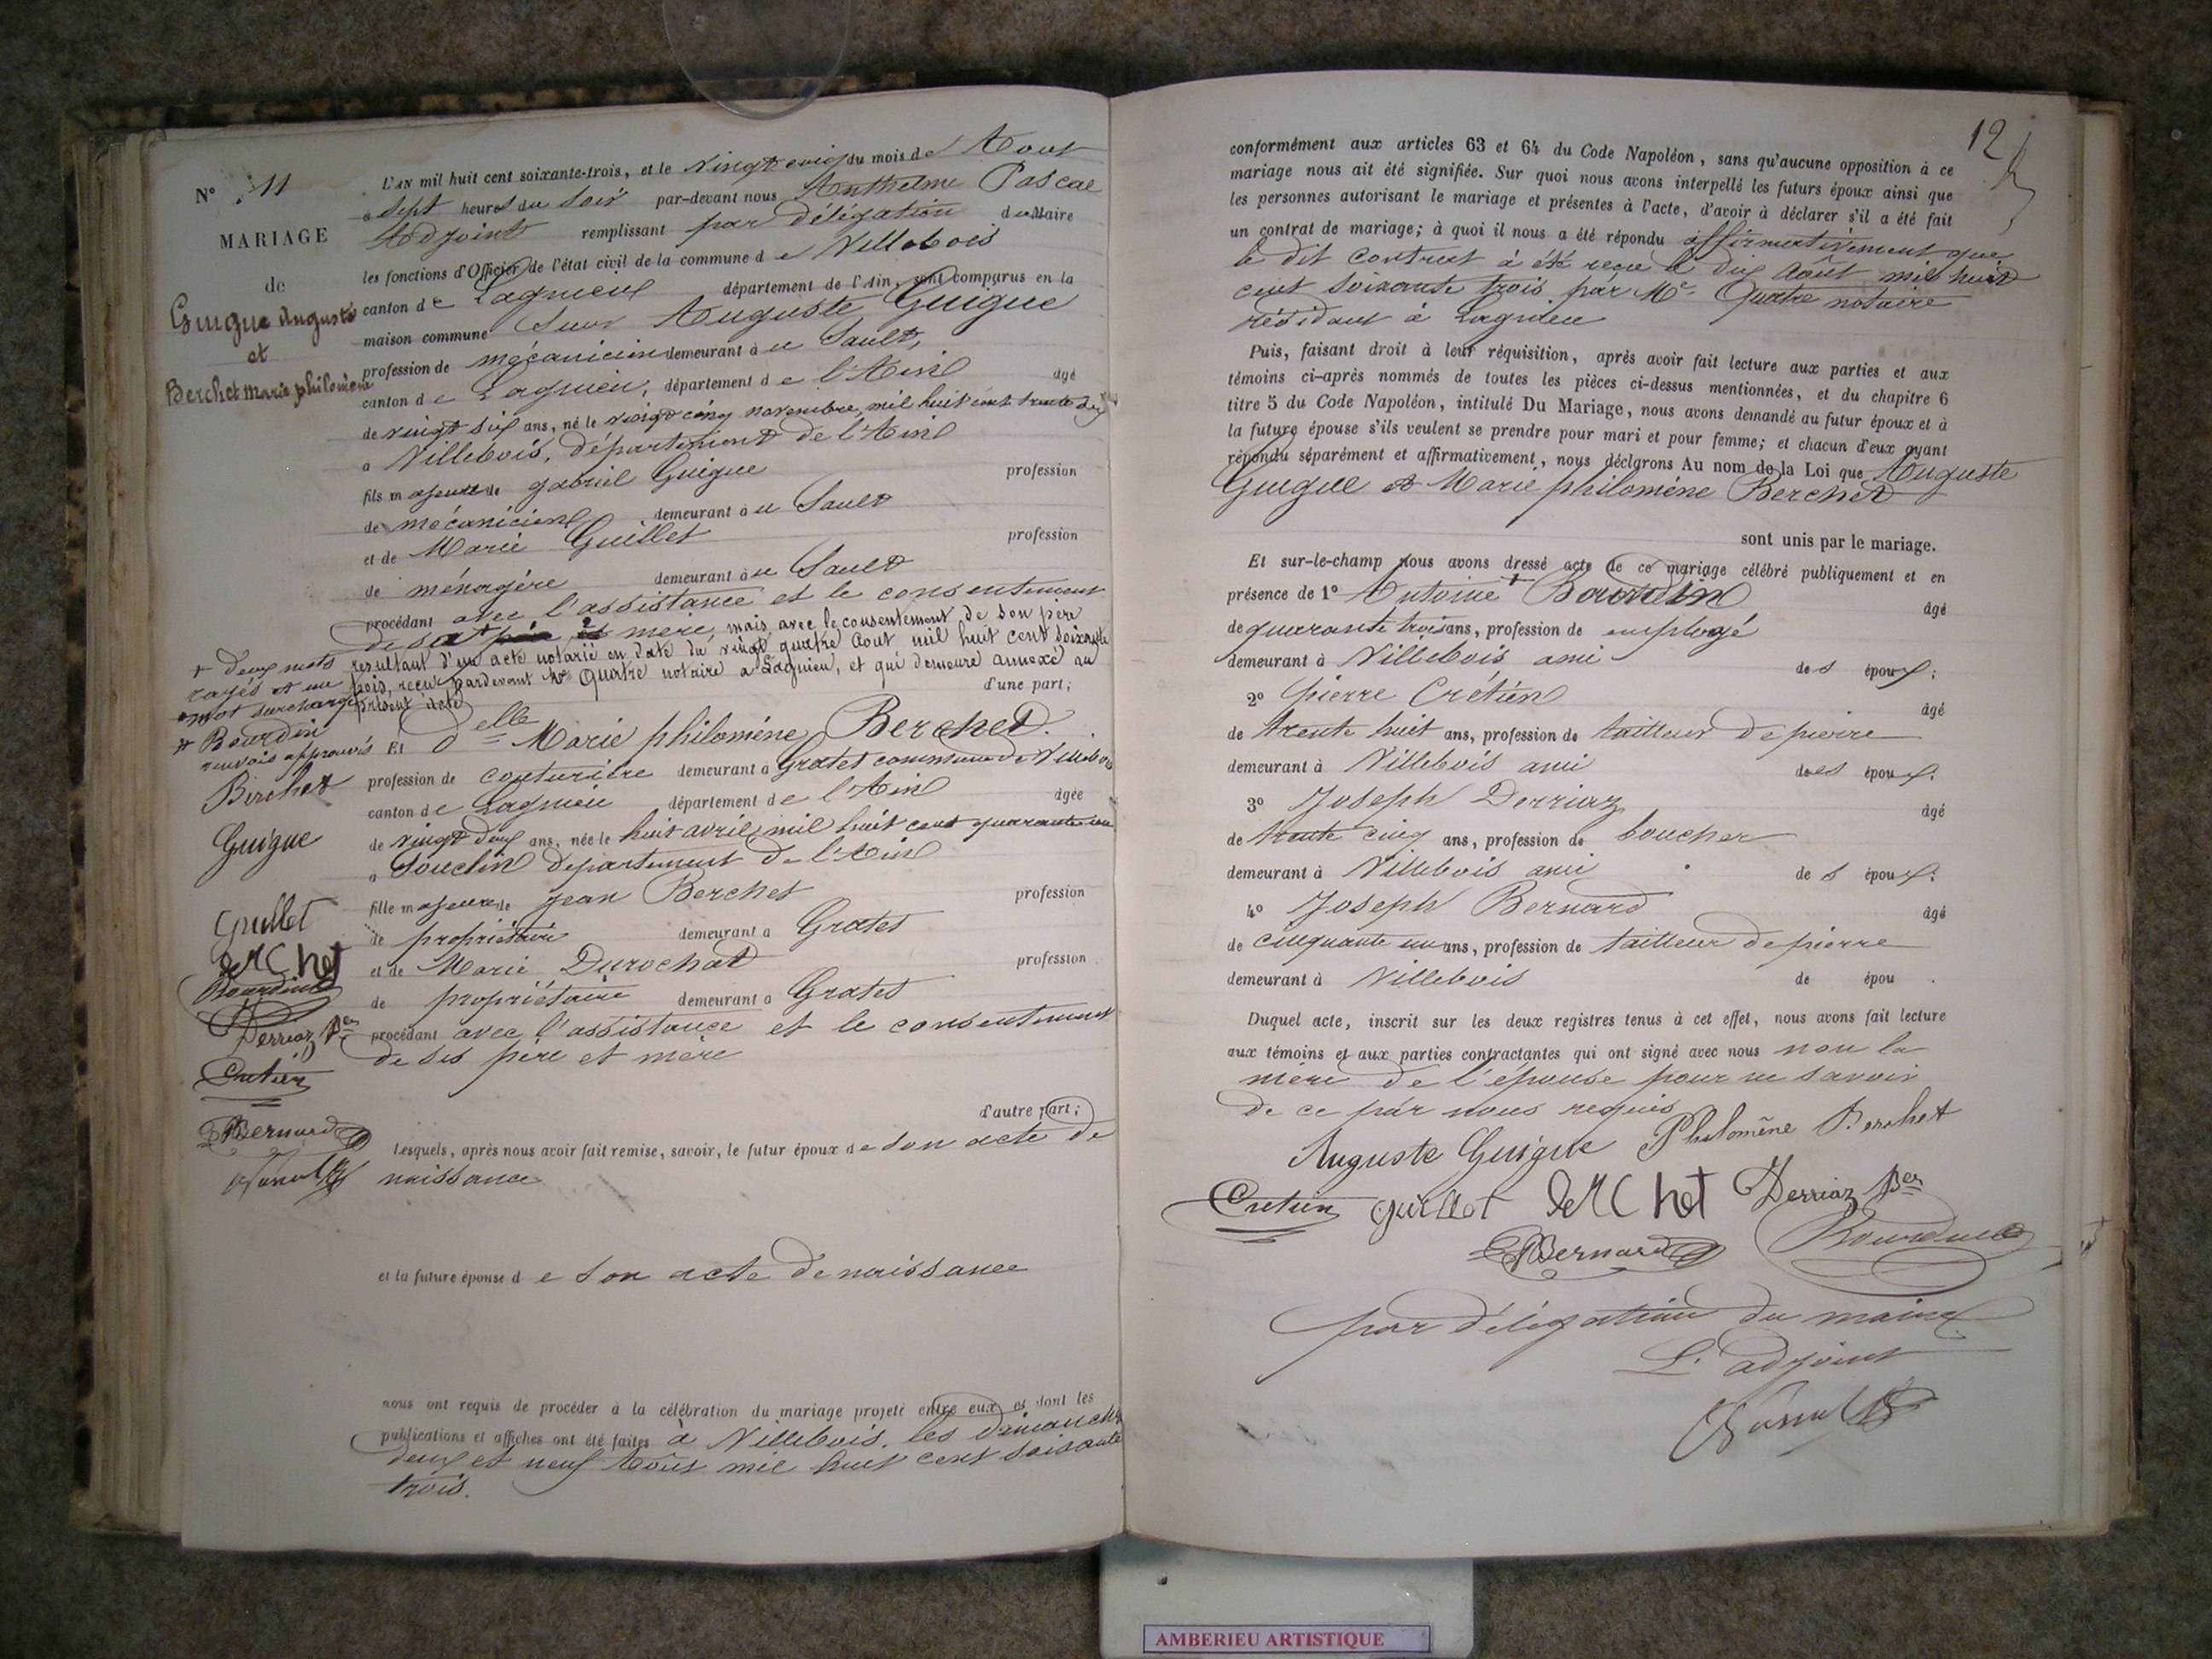 N° 11
MARIAGE
de
Guigue Auguste
et
Berchet Marie philomène
L'AN mil huit cent soixante-trois, et le vingt cinq du mois de Aout
à sept heures du soir par-devant nous Anthelme Pascal
Adjoint remplissant par délégation du Maire
les fonctions d'Officier de l'état civil de la commune de Villebois
canton de Lagnieu département de l'Ain, sont comparus en la
maison commune Sieur Auguste Guigue
profession de mécanicien demeurant à u Sault,
canton de Lagnieu, département de l'Ain âgé
de vingt six ans, né le vingt cinq novembre mil huit cent trente six
à Villebois, département de l'Ain
fils majeur de gabriel Guigue profession
de mécanicien demeurant à u Sault
et de Marie Guillet profession
de ménagère demeurant à u Sault
procédant avec l'assistance et le consentement
de sa + mère, mais avec le consentement de son père
resultant d'un acte notarié en date du vingt quatre Aout mil huit cent soixante
trois, reçu pardevant Me Quatre notaire a Lagnieu, et qui demeure annexé au
présent acte
d'une part;
+ deux mots
rayés et un
mot surchargé
* Bourdin
renvois approuvés
Berchet
Guigue
Guillet
BeRChet
Bourdin
Derriaz Per
Cretien
Bernard
Pascal
Et Delle Marie philomène Berchet.
profession de couturière demeurant à Gratet commune de Villebois
canton de Lagnieu département de l'Ain âgée
de vingt deux ans, née le huit avril mil huit cent quarante un
à Souclin département de l'Ain
fille majeure de Jean Berchet profession
de propriétaire demeurant à Gratet
et de Marie Durochat profession
de propriétaire demeurant à Gratet
procédant avec l'assistance et le consentement
de ses père et mère
d'autre part;
Lesquels, après nous avoir fait remise, savoir, le futur époux de son acte de
naissance
et la future épouse de son acte de naissance
nous ont requis de procéder à la célébration du mariage projeté entre eux et dont les
publications et affiches ont été faites à Villebois, les dimanches
deux et neuf Août mil huit cent soixante
trois.
12
conformément aux articles 63 et 64 du Code Napoléon, sans qu'aucune opposition à ce
mariage nous ait été signifiée. Sur quoi nous avons interpellé les futurs époux ainsi que
les personnes autorisant le mariage et présentes à l'acte, d'avoir à déclarer s'il a été fait
un contrat de mariage; à quoi il nous a été répondu affirmativement que
le dit contrat à été reçu le dix Août mil huit
cent soixante trois par Me Quatre notaire
résidant à Lagnieu
Puis, faisant droit à leur réquisition, après avoir fait lecture aux parties et aux
témoins ci-après nommés de toutes les pièces ci-dessus mentionnées, et du chapitre 6
titre 5 du Code Napoléon, intitulé Du Mariage, nous avons demandé au futur époux et à
la future épouse s'ils veulent se prendre pour mari et pour femme; et chacun d'eux ayant
répondu séparément et affirmativement, nous déclarons Au nom de la Loi que Auguste
Guigue et Marie philomène Berchet
sont unis par le mariage.
Et sur-le-champ nous avons dressé acte de ce mariage célébré publiquement et en
présence de 1° Antoine Bourdin âgé
de quarante trois ans, profession de employé
demeurant à Villebois ami des époux;
2° pierre Crétien âgé
de trente huit ans, profession de tailleur de pierre
demeurant à Villebois ami des époux;
3° Joseph Derriaz âgé
de trente cinq ans, profession de boucher
demeurant à Villebois ami des époux;
4° Joseph Bernard âgé
de cinquante un ans, profession de tailleur de pierre
demeurant à Villebois de épou .
Duquel acte, inscrit sur les deux registres tenus à cet effet, nous avons fait lecture
aux témoins et aux parties contractantes qui ont signé avec nous non la
mère de l'épouse pour ne savoir
de ce par nous requis
Auguste Guigue Philomène Berchet
Cretien Guillet BeRChet Derriaz Per
Bernard Bourdin
par délégation du maire
L'adjoint
Pascal
AMBERIEU ARTISTIQUE